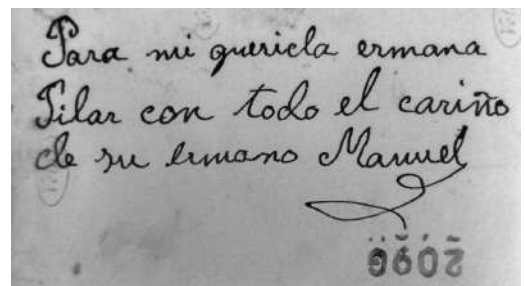 Para mi querida ermana
Pilar con todo el cariño
de su ermano Manuel